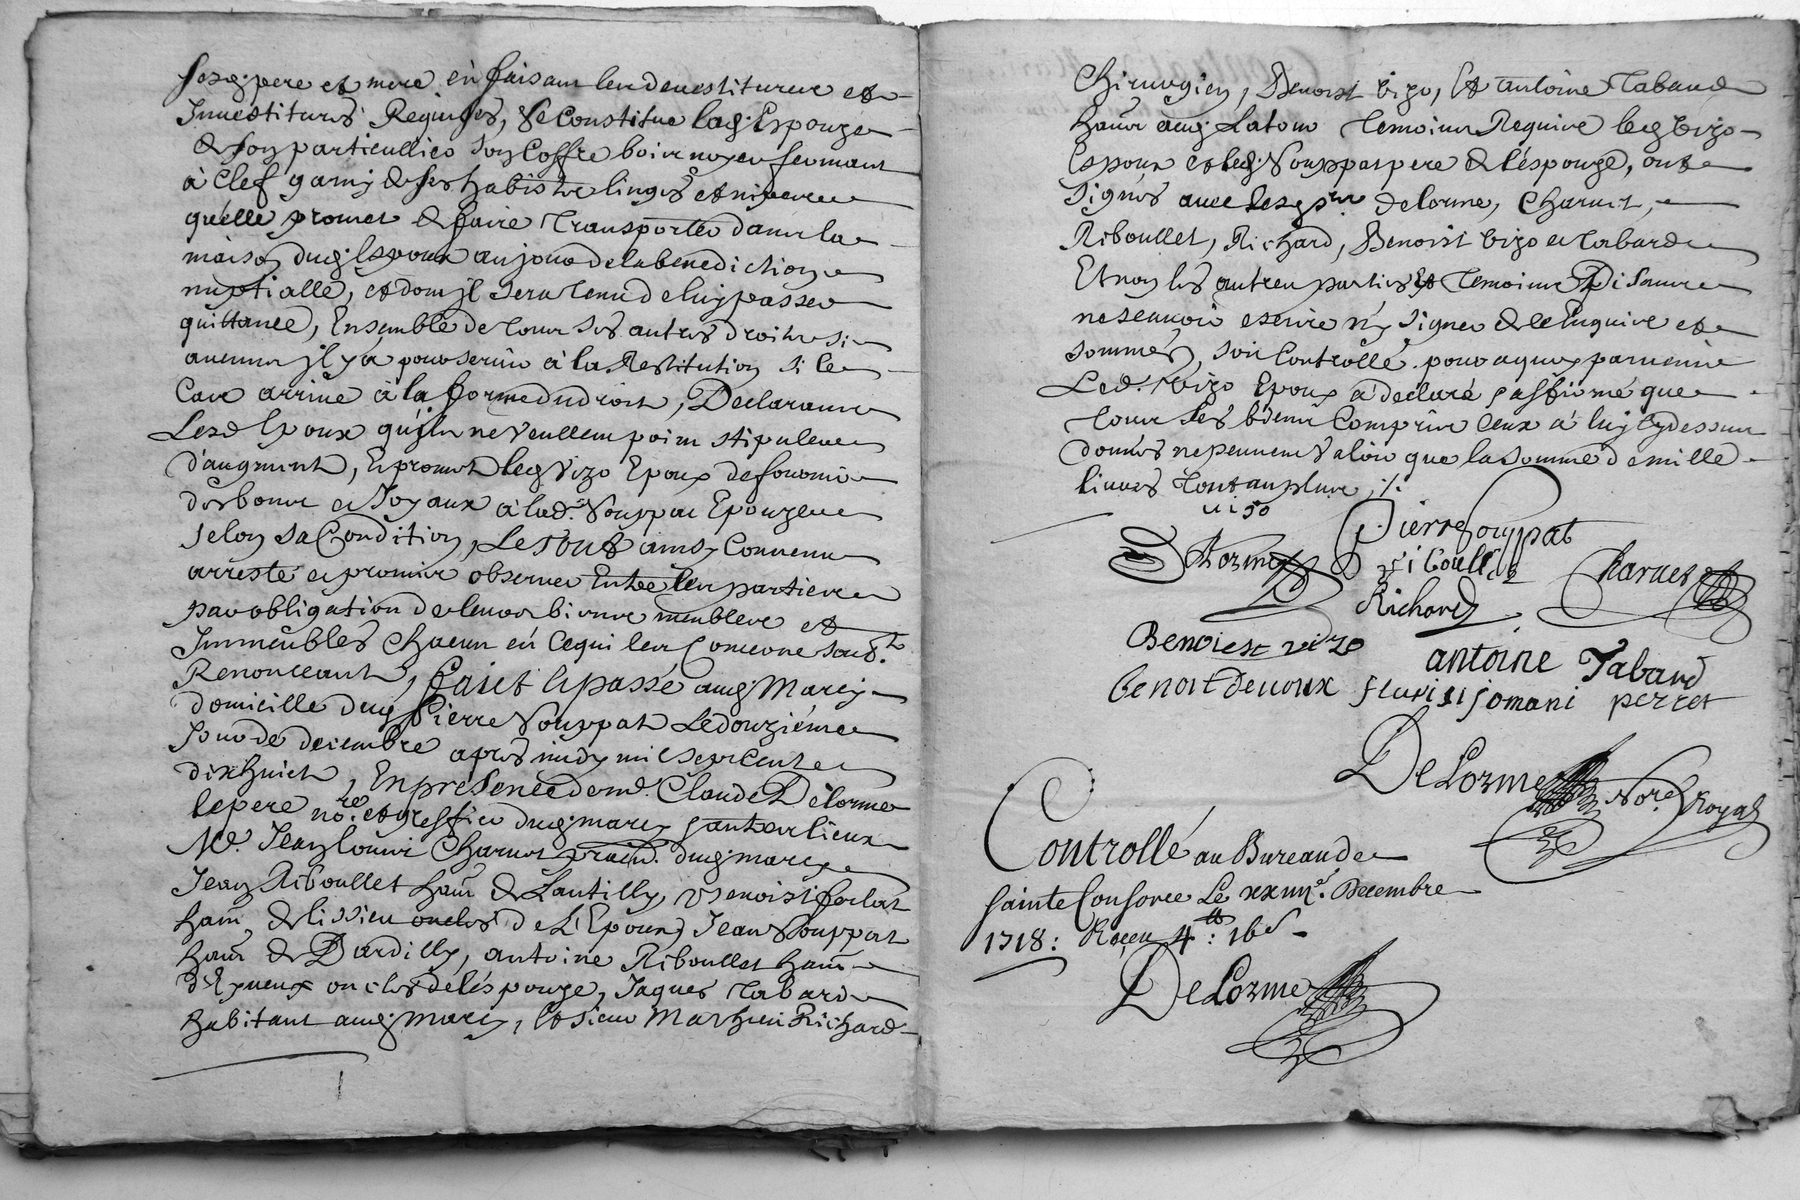 sesd. pere et mere en faisant les devestitures et
Investitures Requises, se Constitue lad. Espouze
de son particullier son Coffre bois noyer fermant
à Clef garny de ses habits linges et
qu'elle promet de faire Transporter dans la
maison dud. Espoux au jour de la benediction
nuptialle, et dont jl sera tenu de luy passer
quittance, Ensemble de tous ses autres droits si
aucuns jl y a pour servir à la Restitution si le
Cas arrive à la forme du droit, Declarants
Lesd Epoux qu'jls ne veullent point stipuler
d'augment, Et promet led Vizo Epoux de fournir
des bonne et Joyaux à lad. Souppat Epouze
selon sa Condition, Le tout ainsy Convenu
arresté et promis observer Entre les parties
par obligation de leurs biens meubles et
Immeubles Chacun en Ce qui les Concerne soub.
Renonceant, faict et passé aud. Marcy
domicille dud Pierre Souppat Le douzième
Jour de decembre apres midy mil sept Cents
dix huict, En presence de md. Claude Delorme
le pere nore. et greffier dud. marcy & autres lieux
Me. Jean louis Charvet dud. marcy
Jean Riboullet ham de Lantilly, Benoist
ham. de lissieu oncles de L'Epoux, Jean Souppat
ham de Dardilly, antoine Riboullet ham
d'Eyveux oncles de l'éspouze, Jaques tabard
habitant aud. Marcy, Et sieur Mathieu Richard
Chirurgien, Benoist Vizo, Et antoine Tabard
hans aud. Latour Temoins Requis led Vizo
Espoux et led. Souppat pere de l'éspouze, ont
signés avec lesd. srs Delorme, Charvet,
Riboullet, Richard, Benoist Vizo et tabard
Et non les autres parties Et Temoins Disants
ne sçauoir escrire ny signer de ce Enquis et
sommés, soit Controllé pour aquoy parvenir
Led. Vizo Epoux à déclaré & affirmé que
tous ses biens Compris Ceux à luy Cy dessus
donnés ne peuvent valoir que la somme de mille
livres tout au plus ./.
Pierre Souppat
DeLorme riboullet Charvet
Richard
Benoist vizo antoine Tabard
benoit devoux fleuri jomani perret
DeLorme Nore. Royal
Controllé au Bureau de
Sainte Consorce Le xxiiii. Decembre
1718: Receu 4tt: 16s
DeLorme